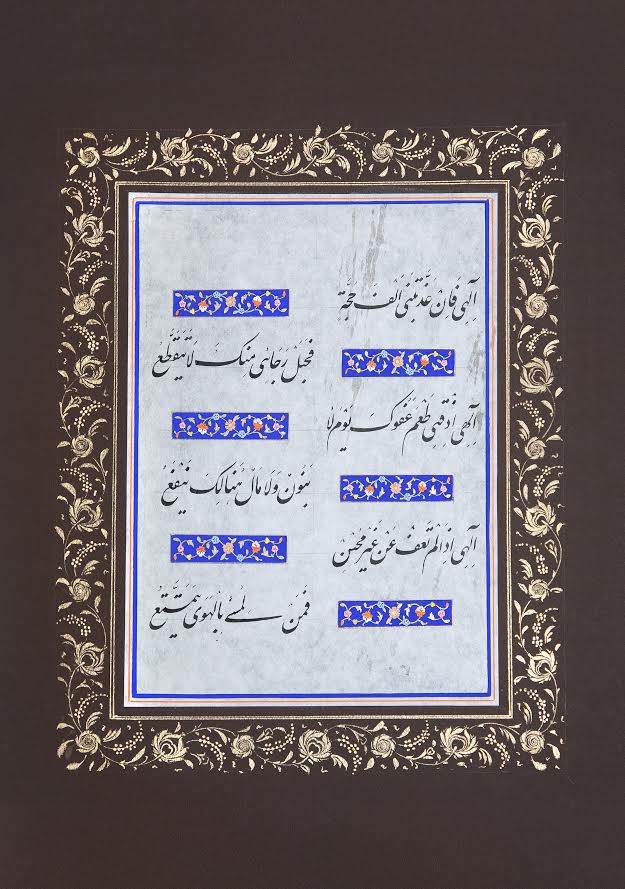 اَلٰهی فَاِنْ عَذَّبْتَنی اَلْفَ حِجَّةٍ
فَحَبْلُ رَجَائی مِنْکَ لَا یَتَقَطَّعُ
اِلٰهی اَذِقْنی طَعْمَ عَفْوِکَ یَوْمَ لا
بَنُونَ وَلَا مالٌ هُنٰالِکَ یَنْفَعُ
اِلٰهی اِذا لَمْ تَعْفُ عَنْ غَیْرِ مُحْسِنٍ
فَمَنْ لِمُسیءٍ بِالْهَوی یَتَمَتَّعُ